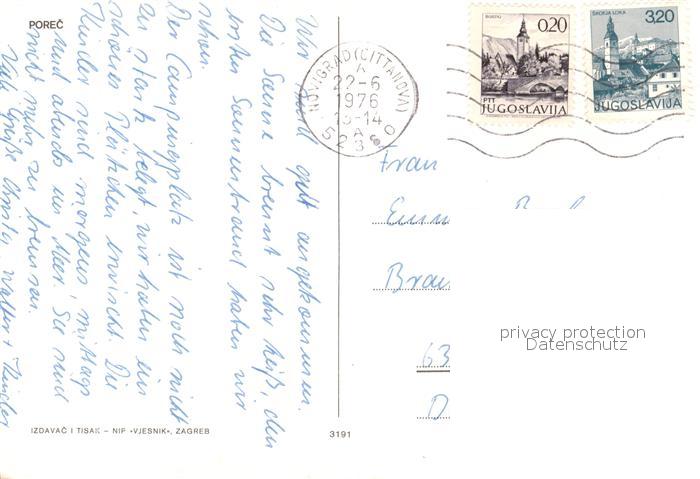 POREČ
Wir sind gut angekommen.
Die Sonne brennt sehr heiß, den
ersten Sonnenbrand haben wir
schon.
Der Campingplatz ist noch nicht
zu stark belegt, wir haben ein
schönes Plätzchen erwischt. Die
Kinder sind morgens, mittags
und abends im Meer. Sie sind
nicht mehr zu bremsen.
Viele Grüße Christa, Walter + Kinder
IZDAVAČ I TISAK – NIP »VJESNIK«, ZAGREB
3191
NOVIGRAD (CITTANOVA)
A
22-6
1976
13-14
A
BOHINJ
0.20
PTT
JUGOSLAVIJA
ŠKOFJA LOKA
3.20
JUGOSLAVIJA
Frau
Emm
Brau
63
D
privacy protection
Datenschutz